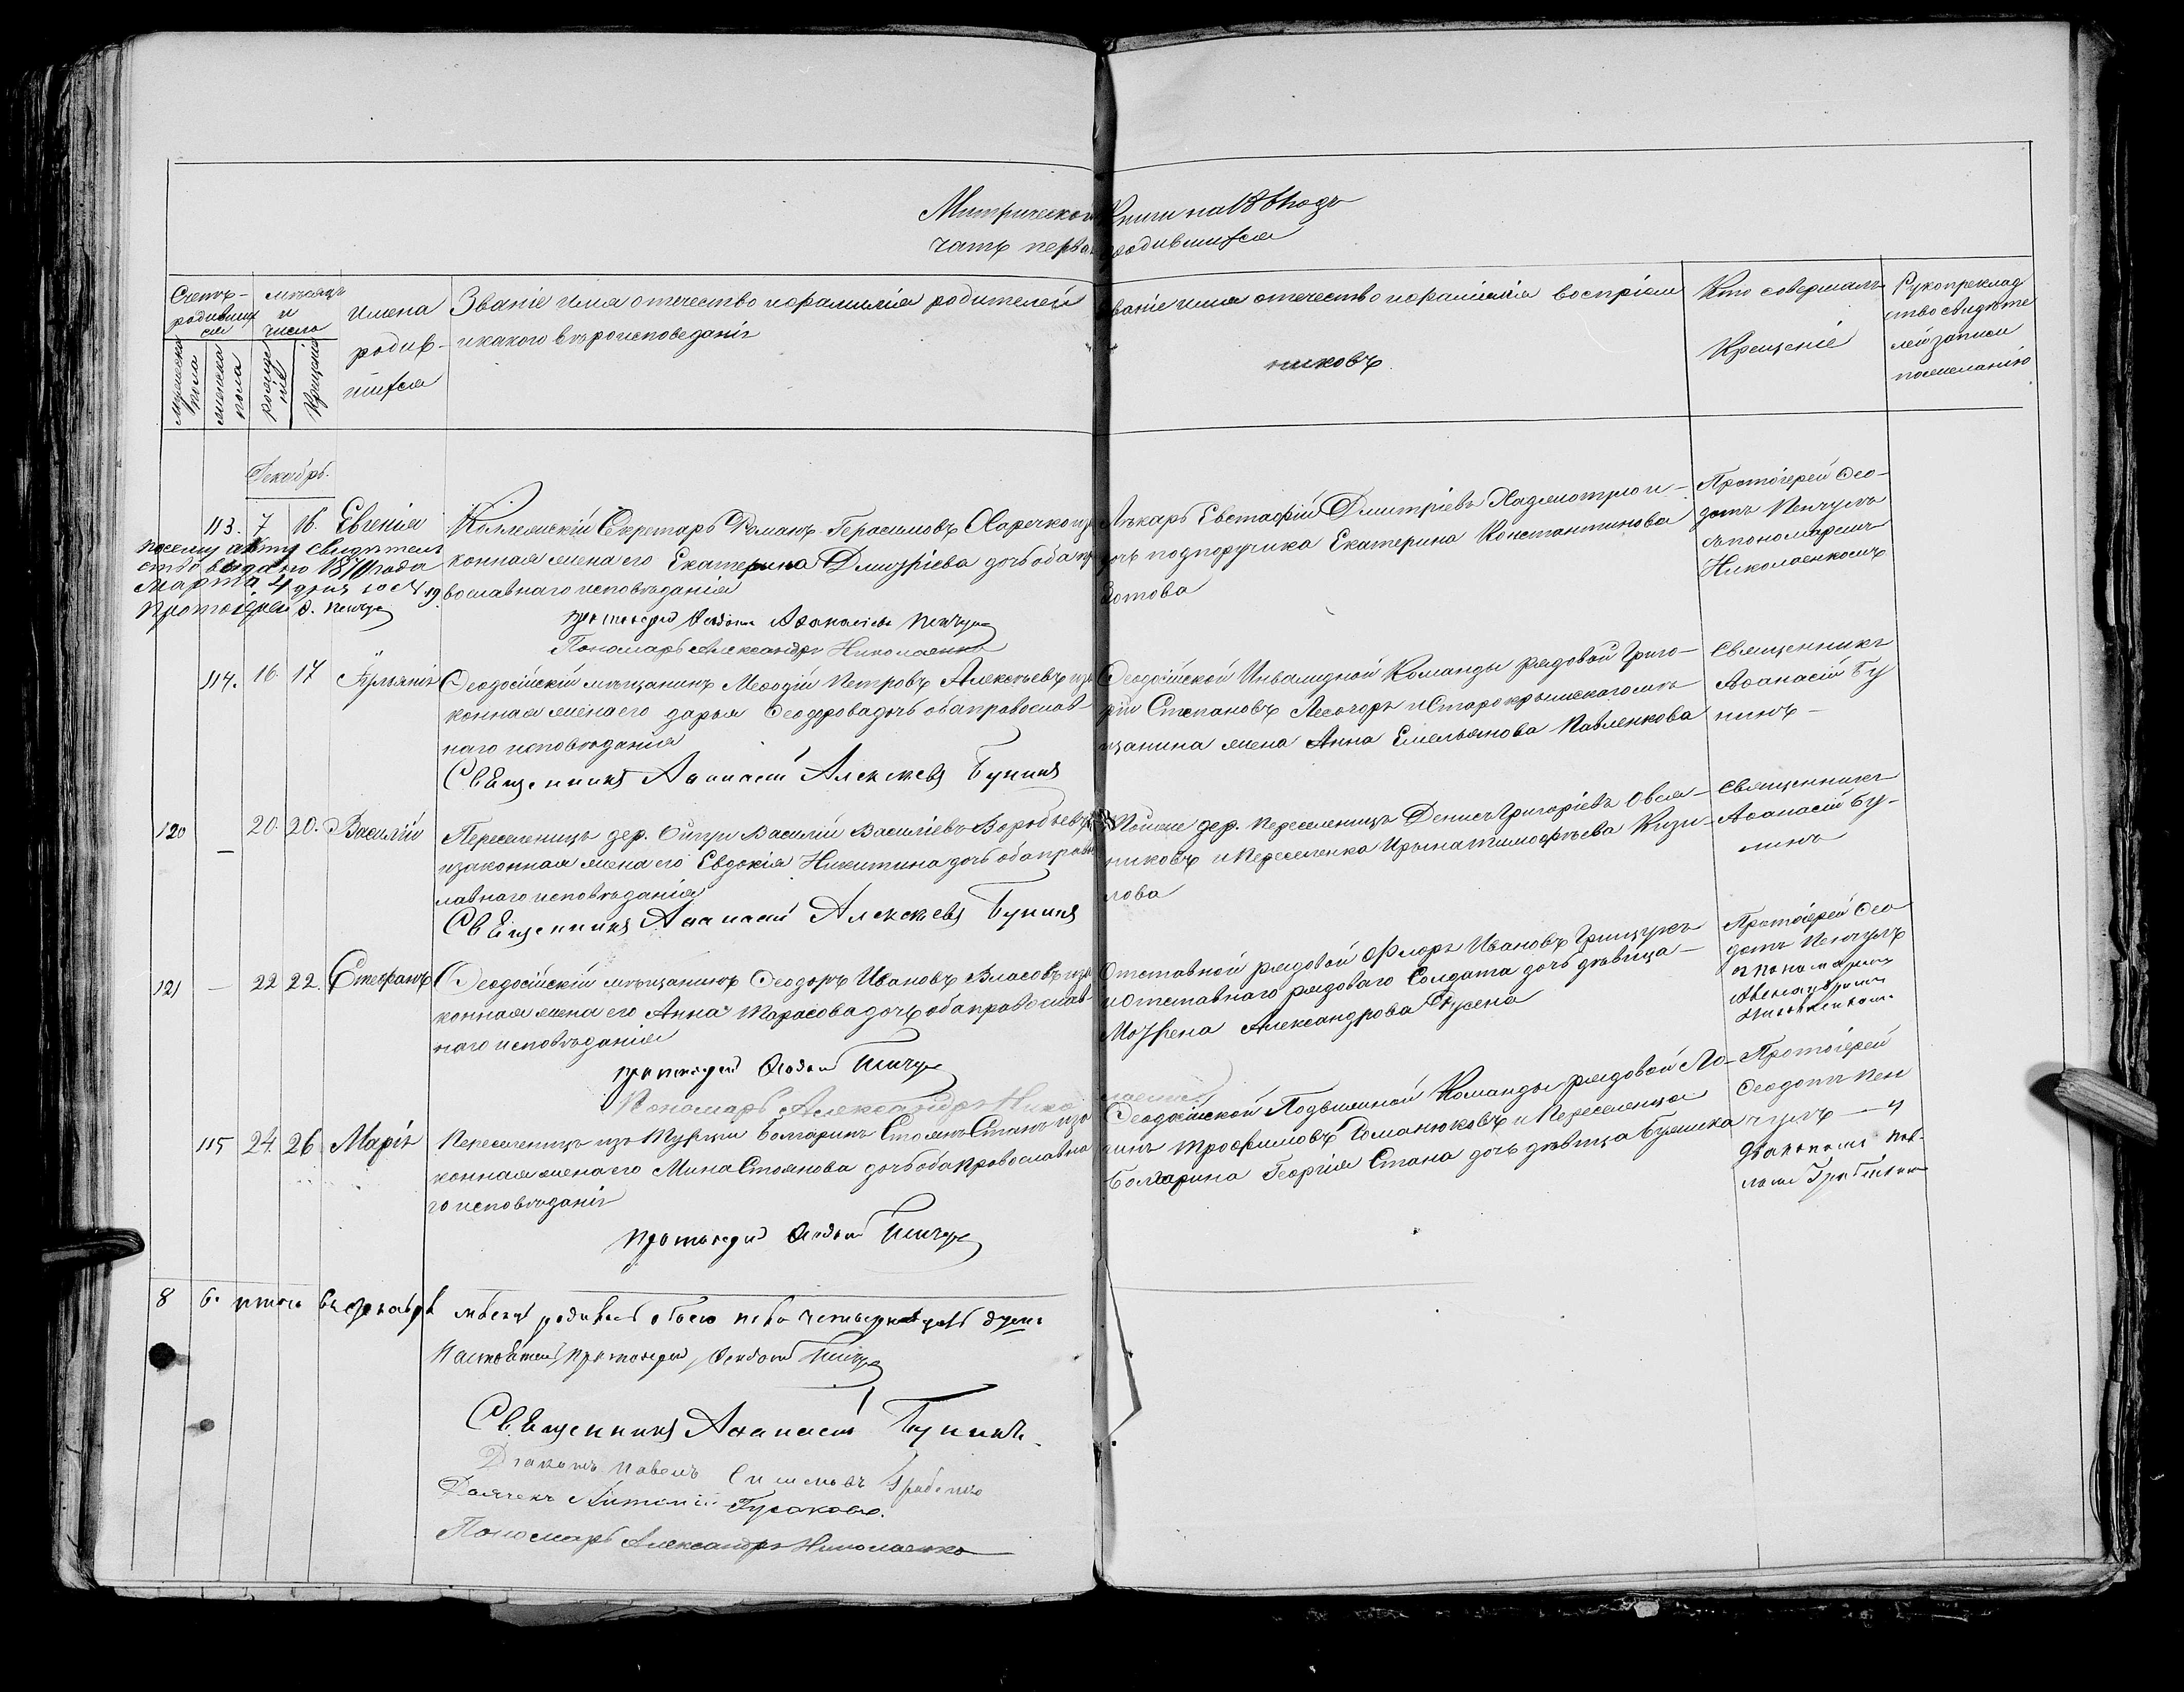 Метрической Книги на 186 годъ
часть первая о родившихся
Счетъ родившихся
мужеска пола
женска пола
мѣсяцъ и число
рожденія
Крещенія
Имена родившихся
Званіе имя отечество и фамилія родителей
и какого вѣроисповеданія
Званіе имя отечество и фамилія воспріем
никовъ.
Кто совершалъ
Крещеніе
Рукоприклад
ство свидѣте
лей записи
по желанію
Декабрь.
113. 7 16. Евгенія
Коллежскій Секретарь Романъ Герасимовъ Харечко и за
конная жена его Екатерина Дмитріева дочь оба пра
вославнаго исповѣданія
Протоіерей Феодотъ Афанасіевъ Пенчулъ
Пономарь Александръ Николаенко
По сему акту свидѣтель
ство выдано 18 года
Марта 4 дня за № 19.
Протоіерей Ф. Пенчулъ
Лѣкарь Евстафій Дмитріевъ Хаджиотріои
дочь подпоручика Екатерина Константинова
дотова
Протоіерей Фео-
дотъ Пенчулъ
съ пономаремъ
Николаенкомъ
114. 16. 17 Іуліанія
Феодосійскій мѣщанинъ Мефодій Петровъ Алексѣевъ и за
конная жена его Дарья Феодорова дочь оба православ
наго исповѣданія
Священникъ Афанасій Алексѣевъ Бунинъ
Феодосійской Инвалидной Команды рядовой Григо-
рій Степановъ Лесогоръ и Старокрымскаго мѣ
щанина жена Анна Емельянова Павленкова
Священникъ
Афанасій Бу
нинъ
120 — 20. 20. Василій
Переселенецъ дер. Василій Василіевъ Воробьевъ
и законная жена его Евдокія Никитина дочь оба правос
лавнаго исповѣданія
Священникъ Афанасій Алексѣевъ Бунинъ
Тойже дер. переселенецъ Денисъ Григоріевъ Овся-
никовъ и переселенка Ирына Тимофѣева Кузи-
лова
Священникъ
Афанасій Бу-
нинъ
121 — 22 22. Стефанъ
Феодосійскій мѣщанинъ Феодоръ Ивановъ Власовъ и за
конная жена его Анна Тарасова дочь оба православ
наго исповѣданія
Протоіерей Феодотъ Пенчулъ
Пономарь Александръ Николаенко
Отставной рядовой Флоръ Ивановъ Грищукъ
и отставнаго рядоваго Солдата дочь дѣвица
Матрена Александрова
Протоіерей Фео
дотъ Пенчулъ
и пономаремъ
Александромъ
Николаенкомъ.
115 24. 26 Марія
Переселенецъ изъ Турціи Болгаринъ Стоянъ Станъ и за
конная жена его Мина Стоянова дочь оба православна
го исповѣданія
Протоіерей Феодотъ Пенчулъ
Феодосійской Подвижной Команды рядовой Ло-
гинъ Трофимовъ Романюковъ и Переселенца
Болгарина Георгія Стана дочь дѣвица
Протоіерей
Феодотъ Пен
чулъ — и
Діакономъ Пав-
ломъ Грабенко
8 6. итого въ декабрѣ мѣсяцѣ родилось обоего пола четырнадцать душъ
Настоятель Протоіерей Феодотъ Пенчулъ
Священникъ Афанасій Бунинъ.
Діаконъ Павелъ Грабенко
Дьячекъ Антоній Гусаковъ.
Пономарь Александръ Николаенко